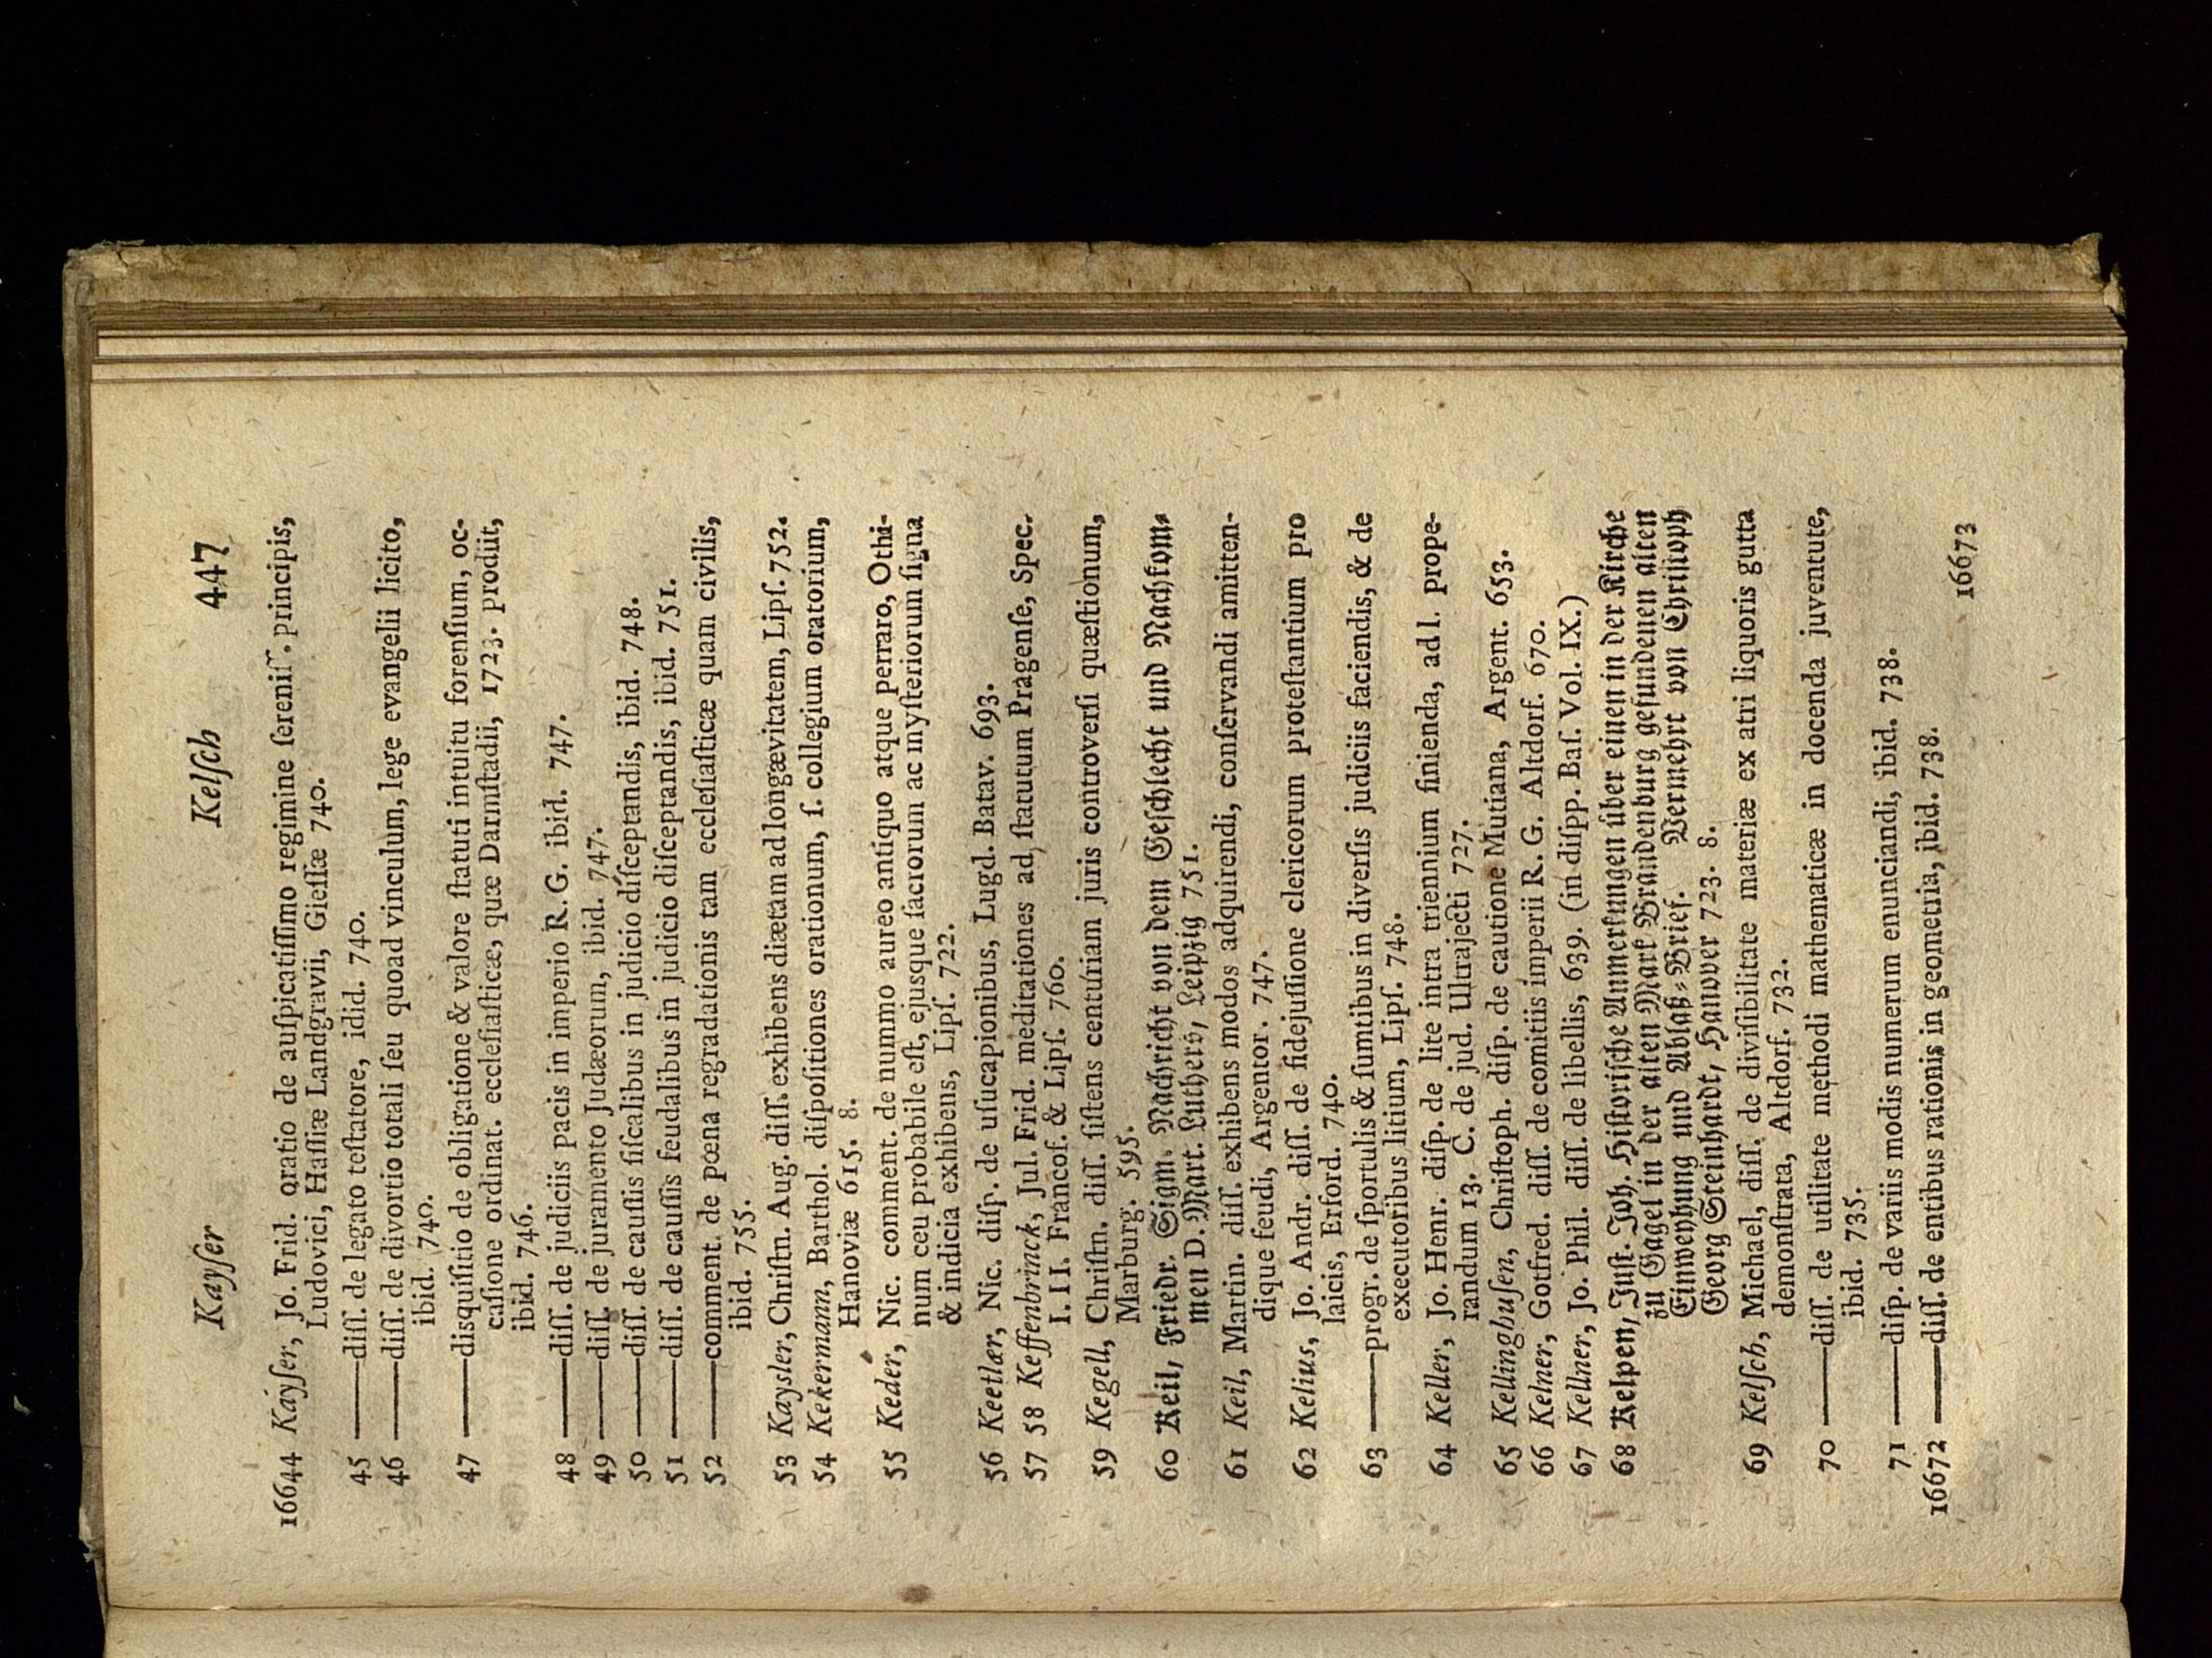 Kayſer Kelſch 447
16644 Kayſer, Jo. Frid. oratio de auſpicatiſſimo regimine ſereniſſ. principis,
Ludovici, Haſſiæ Landgravii, Gieſſæ 740.
45 ——diſſ. de legato teſtatore, idid. 740.
46 ——diſſ. de divortio totali ſeu quoad vinculum, lege evangelii licito,
ibid. 740.
47 ——disquiſitio de obligatione & valore ſtatuti intuitu forenſium, oc-
caſione ordinat. eccleſiaſticæ, quæ Darmſtadii, 1723. prodiit,
ibid. 746.
48 ——diſſ. de judiciis pacis in imperio R. G. ibid. 747.
49 ——diſſ. de juramento Judæorum, ibid. 747.
50 ——diſſ. de cauſſis fiſcalibus in judicio diſceptandis, ibid. 748.
51 ——diſſ. de cauſſis feudalibus in judicio diſceptandis, ibid. 751.
52 ——comment. de pœna regradationis tam eccleſiaſticæ quam civilis,
ibid. 755.
53 Kaysler, Chriſtn. Aug. diſſ. exhibens diætam ad longævitatem, Lipſ. 752.
54 Kekermann, Barthol. diſpoſitiones orationum, ſ. collegium oratorium,
Hanoviæ 615. 8.
55 Keder, Nic. comment. de nummo aureo antiquo atque perraro, Othi-
num ceu probabile eſt, ejusque ſacrorum ac myſteriorum ſigna
& indicia exhibens, Lipſ. 722.
56 Keetlær, Nic. diſp. de uſucapionibus, Lugd. Batav. 693.
57 58 Keffenbrinck, Jul. Frid. meditationes ad ſtatutum Pragenſe, Spec.
I. II. Francof. & Lipſ. 760.
59 Kegell, Chriſtn. diſſ. ſiſtens centuriam juris controverſi quæſtionum,
Marburg. 595.
60 Keil, Friedr. Sigm. Nachricht von dem Geſchlecht und Nachkom-
men D. Mart. Luthers, Leipzig 751.
61 Keil, Martin. diſſ. exhibens modos adquirendi, conſervandi amitten-
dique feudi, Argentor. 747.
62 Kelius, Jo. Andr. diſſ. de fidejuſſione clericorum proteſtantium pro
laicis, Erford. 740.
63 ——progr. de ſportulis & ſumtibus in diverſis judiciis faciendis, & de
executoribus litium, Lipſ. 748.
64 Keller, Jo. Henr. diſp. de lite intra triennium finienda, ad l. prope-
randum 13. C. de jud. Ultrajecti 727.
65 Kellinghuſen, Chriſtoph. diſp. de cautione Mutiana, Argent. 653.
66 Kelner, Gotfred. diſſ. de comitiis imperii R. G. Altdorf. 670.
67 Kellner, Jo. Phil. diſſ. de libellis, 639. (in diſpp. Baſ. Vol. IX.)
68 Kelpen, Juſt. Joh. Hiſtoriſche Anmerkungen über einen in der Kirche
zu Gagel in der alten Mark Brandenburg gefundenen alten
Einweyhung und Ablaß-Brief. Vermehrt von Chriſtoph
Georg Steinhardt, Hanover 723. 8.
69 Kelſch, Michael, diſſ. de diviſibilitate materiæ ex atri liquoris gutta
demonſtrata, Altdorf. 732.
70 ——diſſ. de utilitate methodi mathematicæ in docenda juventute,
ibid. 735.
71 ——diſp. de variis modis numerum enunciandi, ibid. 738.
16672 ——diſſ. de entibus rationis in geometria, ibid. 738.
16673